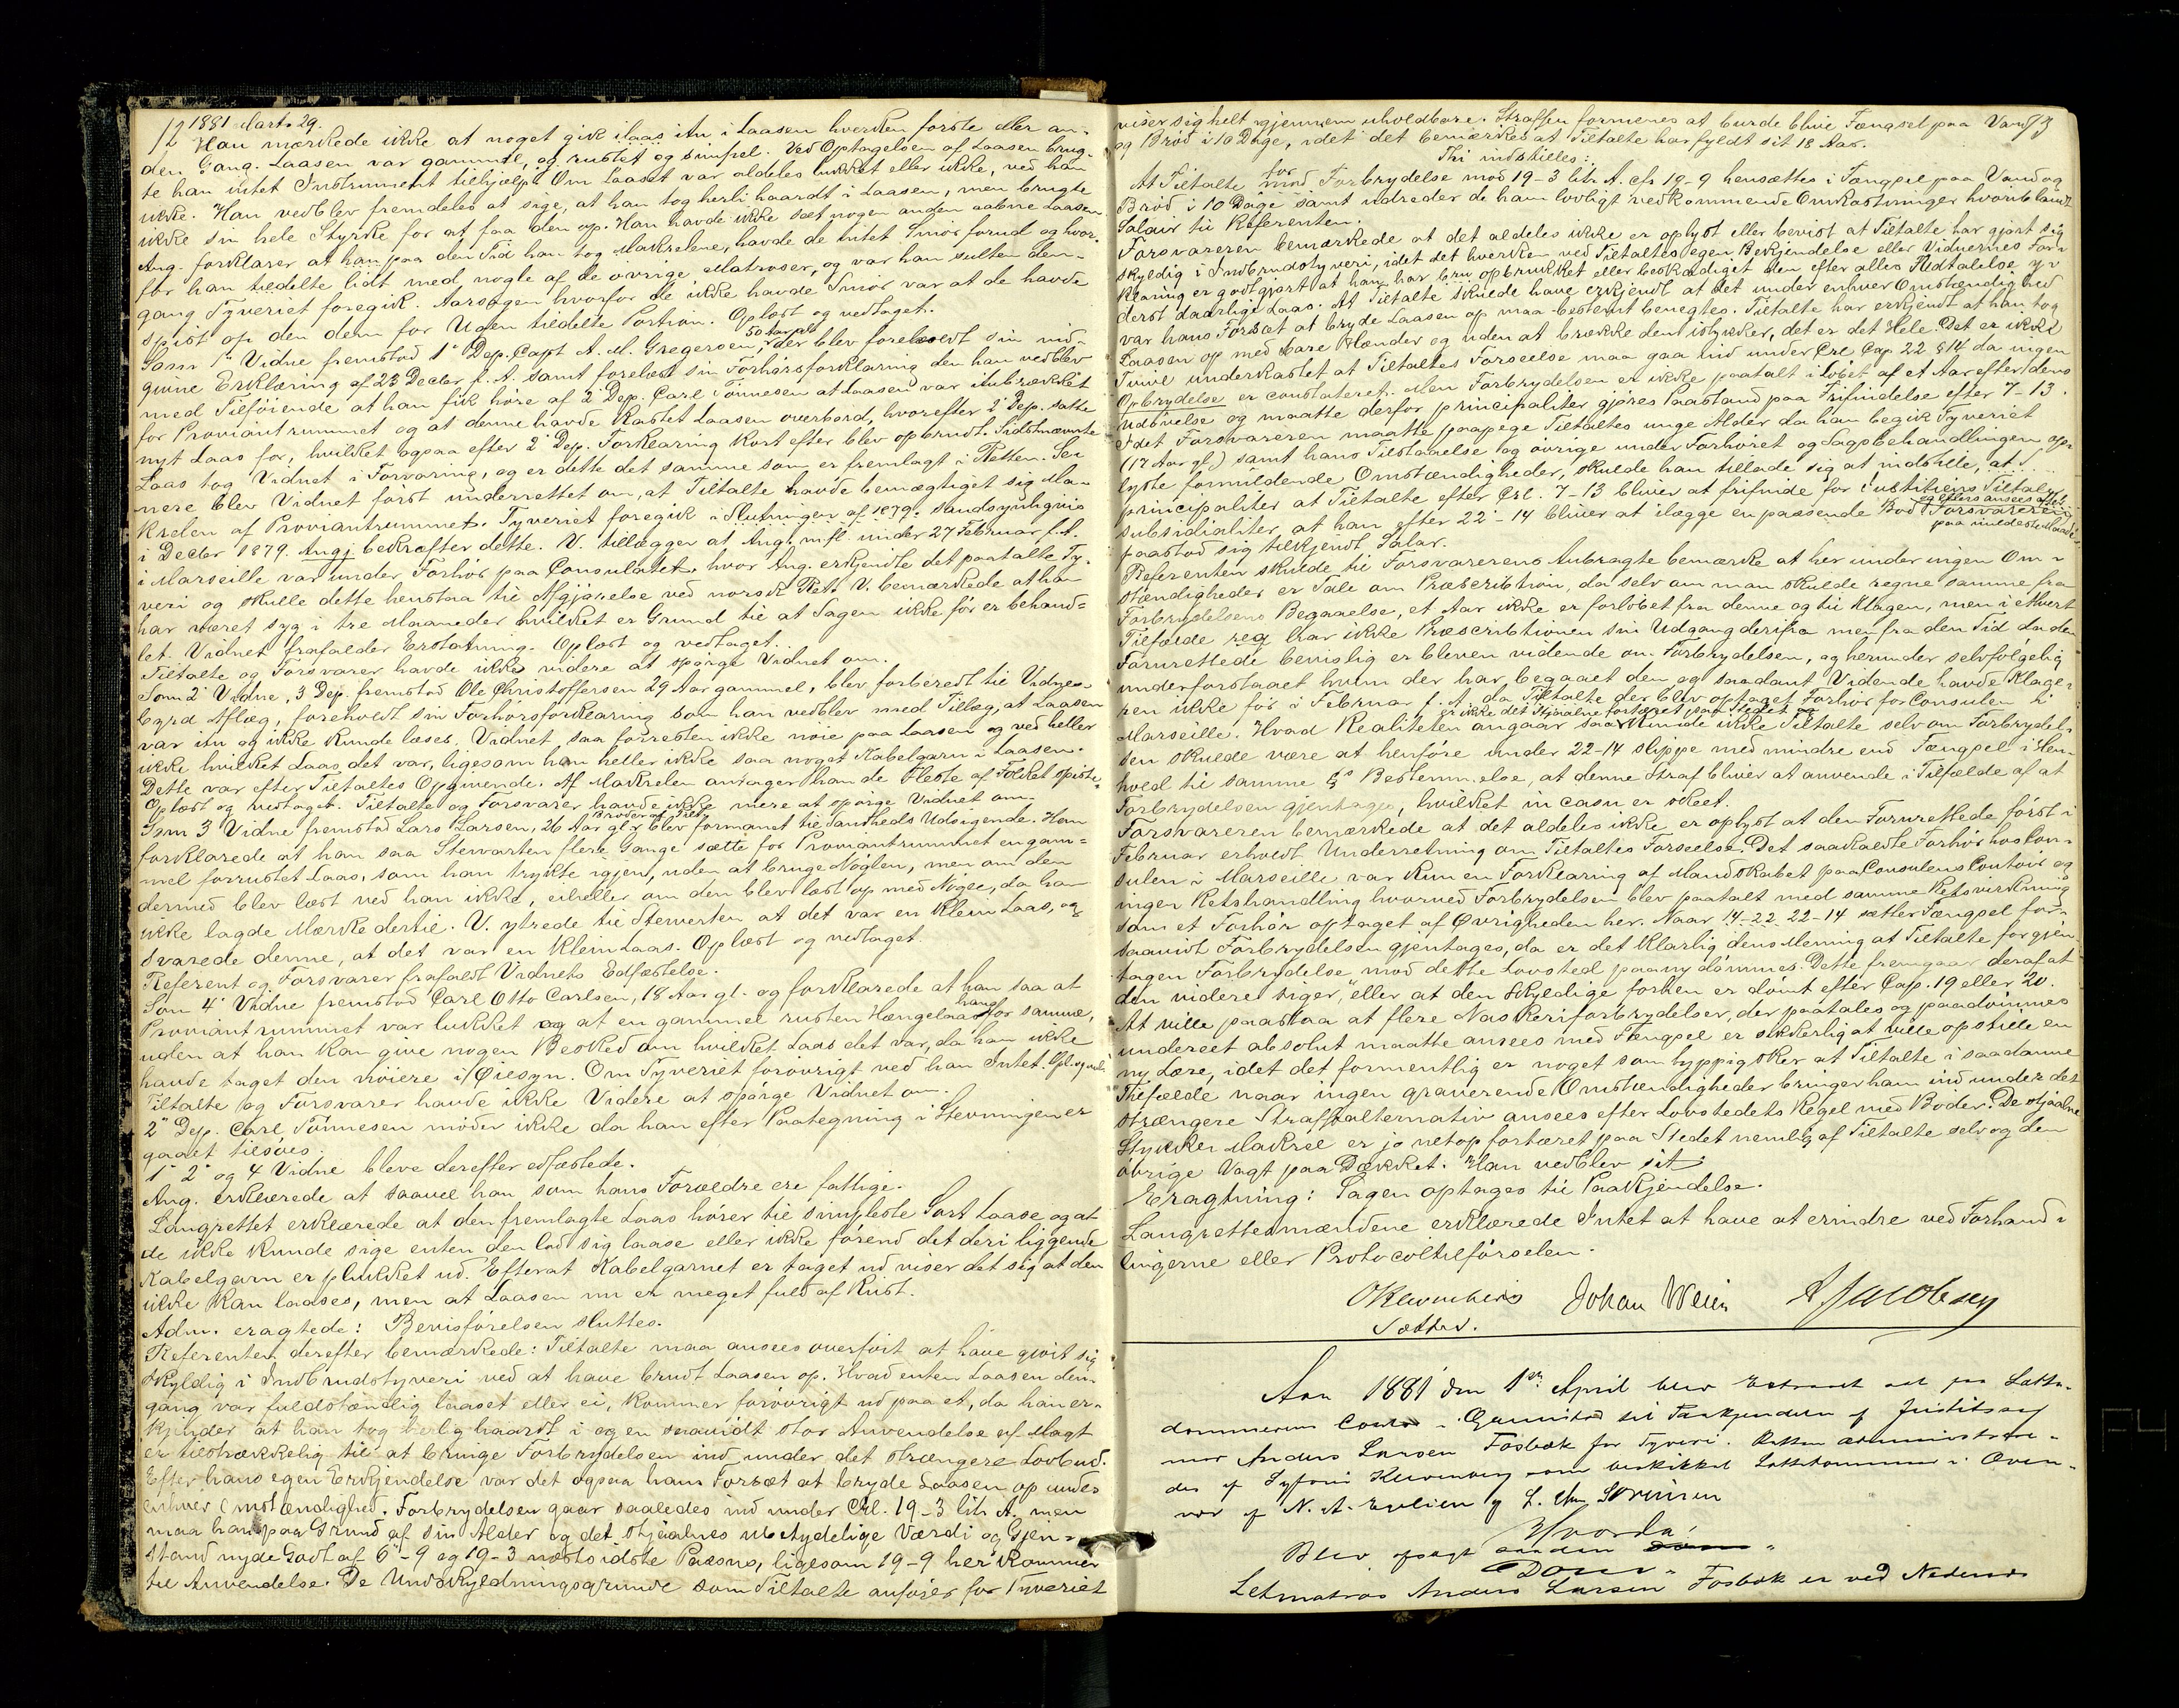 12 1881 Marts 29.
Han mærkede ikke at noget gik ilaas itu i Laasen hverken første eller an-
den Gang. Laasen var gammel, og rustet og simpel. Ved Optagelsen af Laasen brug-
te han intet Instrument tilhjælp. Om Laaset var aldeles lukket eller ikke, ved han
ikke. Han vedblev fremdeles at sige, at han tog herli haardt i Laasen, men brugte
ikke sin hele Styrke for at faa den op. Han havde ikke sæt nogen anden aabne Laasen.
Ang. forklarer at han paa den Tid han tog Makrelene, havde de intet Smør forud og hvor-
for han tildelte lidt med nogle af de øvrige Matroser, og var han sulten den-
gang Tyveriet foregik. Aarsagen hvorfor de ikke havde Smør var at de havde
spist op den dem for Ugen tildelte Portion. Oplæst og vedtaget.
Som 1ste Vidne fremstod 1ste Dep. Capt A. M. Gregersen, 50 Aar gl. der blev foreholdt sin ind-
givne Erklæring af 23 Decbr f. A. samt forelæst sin Forhørsforklaring den han vedblev
med Tilføiende at han fik høre af 2 Dep. Carl Tønnesen at Laasen var itubrækket
for Proviantrummet og at denne havde kastet Laasen overbord, hvorefter 2 Dep. satte
nyt Laas for, hvilket ogsaa efter 2 Dep. Forklaring kort efter blev opbrudt. Sidstnævnte
Laas tog Vidnet i Forvaring, og er dette det samme som er fremlagt i Retten. Sei
nere blev Vidnet først underrettet om, at Tiltalte havde bemægtiget sig Ma-
krelen af Proviantrummet. Tyveriet foregik i Slutningen af 1879. sandsynligvis
i Decbr 1879. Angj bekræfter dette. V. tillægger at Ang. mfl. under 27 Februar f. A.
i Marseille var under Forhør paa Consulatet, hvor Ang. erkjendte det paatalte Ty-
veri og skulle dette henstaa til Afgjørelse ved norsk Ret. V. bemærkede at han
har været syg i tre Maaneder hvilket er Grund til at Sagen ikke før er behand-
let. Vidnet frafalder Erstatning. Oplæst og vedtaget.
Tiltalte og Forsvarer havde ikke videre at spørge Vidnet om.
Som 2 Vidne, 3 Dep. fremstod Ole Christoffersen 29 Aar gammel, blev forberedt til Vidnes-
byrd Aflæg, foreholdt sin Forhørsforklaring som han vedblev med Tillæg, at Laasen
var itu og ikke kunde læses. Vidnet saa forresten ikke nøie paa Laasen og ved heller
ikke hvilket Laas det var, ligesom han heller ikke saa noget Kabelgarn i Laasen.
Dette var efter Tiltaltes Opgivende. Af Makrelen antager han de Fleste af Folket spiste.
Oplæst og vedtaget. Tiltalte og Forsvarer havde ikke mere at spørge Vidnet om.
Som 3 Vidne fremstod Lars Larsen, 26 Aar gl. Broder af Tilt. blev formanet til Sandheds Udsigende. Han
forklarede at han saa Stewarten flere Gange sætte for Proviantrummet en gam-
mel forrustet Laas, som han trykte igjen, uden at bruge Nøglen, men om den
dermed blev læst ved han ikke, eiheller om den blev læst op med Nøgle, da han
ikke lagde Mærke dertil. V. ytrede til Stewerten at det var en klein Laas, og
svarede denne, at det var en klein Laas. Oplæst og vedtaget.
Referent og Forsvarer frafaldt Vidnets Edfæstelse.
Som 4 Vidne fremstod Carl Otto Carlsen, 18 Aar gl. og forklarede at han saa at
Proviantrummet var lukket og at en gammel rusten Hængelaas hang for samme,
uden at han kan give nogen Besked om hvilket Laas det var, da han ikke
havde taget den nøiere i Øiesyn. Om Tyveriet forøvrigt ved han Intet. Opl. og vedt.
Tiltalte og Forsvarer havde ikke Videre at spørge Vidnet om.
2 Dep. Carl Tønnesen møder ikke da han efter Paategning i Stevningen er
gaaet tilsøes.
1 2 og 4 Vidne bleve derefter edfæstede.
Ang. erklærede at saavel han som hans Forældre ere fattige.
Laugrettet erklærede at den fremlagte Laas hører til simpleste Sort Laase og at
de ikke kunde sige enten den lod sig laase eller ikke førend det deri liggende
Kabelgarn er plukket ud. Efterat Kabelgarnet er taget ud viser det sig at den
ikke kan laases, men at Laasen nu er meget fuld af Rust.
Adm. eragtede: Bevisførelsen sluttes.
Referenten derefter bemærkede: Tiltalte maa ansees overført at have gjort sig
skyldig i Indbrudstyveri ved at have brudt Laasen op. Hvad enten Laasen den-
gang var fuldstændig laaset eller ei, kommer forøvrigt ud paa et, da han er-
kjender at han tog herlig haardt i og en saavidt stor Anvendelse af Magt
er tilstrækkelig til at bringe Forbrydelsen ind under det strængere Lovbud.
Efter hans egen Erkjendelse var det ogsaa hans Forsæt at bryde Laasen op under
enhver Omstændighed. Forbrydelsen gaar saaledes ind under Crl. 19-3 litr A. men
maa han paa Grund af sin Alder og det stjaalnes ubetydelige Værdi og Gjen-
stand nyde Godt af 6-9 og 19-3 næstsidste Passus, ligesom 19-9 her kommer
til Anvendelse. De Undskyldningsgrunde som Tiltalte anfører for Tyveriet
13
viser sig helt igjennem uholdbare. Straffen formenes at burde blive Fængsel paa Vand
og Brød i 10 Dage, idet det bemærkes at Tiltalte har fyldt sit 18 Aar.
Thi indstilles:
At Tiltalte for Forbrydelse mod 19-3 litr. A. cfr 19-9 hensættes i Fængsel paa Vand og
Brød i 10 Dage samt udreder de ham lovligt vedkommende Omkostninger hvoriblandt
Salair til Referenten.
Forsvareren bemærkede at det aldeles ikke er oplyst eller bevist at Tiltalte har gjort sig
skyldig i Indbrudstyveri, idet det hverken ved Tiltaltes egen Bekjendelse eller Vidnernes For-
klaring er godtgjort at han har opbrukket eller beskadiget den efter alles Medtalelse y-
derst daarlige Laas. At Tiltalte skulde have erkjendt at det under enhver Omstændighed
var hans Forsæt at bryde Laasen op maa bestemt benegtes. Tiltalte har erkjendt at han tog
Laasen op med bare Hænder og uden at brække den istykker, det er det Hele. Det er ikke
Tvivl underkastet at Tiltaltes Forseelse maa gaa ind under Crl Cap 22 § 14 da ingen
Opbrydelse er constateret. Men Forbrydelsen er ikke paatalt i Løbet af et Aar efter dens
Udøvelse og maatte derfor principaliter gjøres Paastand paa Frifindelse efter 7-13.
Idet Forsvareren maatte paapege Tiltaltes unge Alder da han begik Tyveriet
(17 Aar gl.) samt hans Tilstaaelse og øvrige under Forhøret og Sagsbehandlingen op-
lyste formildende Omstændigheder, skulde han tillade sig at indstille, at
principaliter at Tiltalte efter Crl. 7-13 bliver at frifinde for Justitiens Tiltale
subsidialiter at han efter 22-14 bliver at ilægge en passende Bod og ellers ansees efter
paa mildeste Maade. Forsvareren
paastod sig tilkjendt Salær.
Referenten skulde til Forsvarerens Anbragte bemærke at her under ingen Om-
stændigheder er Tale om Præscribtion, da selv om man skulde regne samme fra
Forbrydelsens Begaaelse, et Aar ikke er forløbet fra denne og til Klagen, men i ethvert
Tilfælde har ikke Præscribtionen sin Udgang derifra men fra den Tid da den
Fornrettede bevislig er bleven vidende om Forbrydelsen, og herunder selvfølgelig
underforstaaet hvem der har begaaet den og saadant Vidende havde Klage-
ren ikke før i Februar f. A. da Tiltalte der blev optaget Forhør for Consulen i
er ikke det stjaalne fortæret paa Stedet og
Marseille. Hvad Realiteten angaar saa kunde ikke Tiltalte selv om Forbrydel-
sen skulde være at henføre under 22-14 slippe med mindre end Fængsel i Hen-
hold til samme §s Bestemmelse, at denne Straf bliver at anvende i Tilfælde af at
Forbrydelsen gjentages, hvilket in casu er skeet.
Forsvareren bemærkede at det aldeles ikke er oplyst at den Fornrettede først i
Februar erholdt Underretning om Tiltaltes Forseelse. Det saakaldte Forhør hos Con-
sulen i Marseille var kun en Forklaring af Mandskabet paa Consulens Contoir og
ingen Retshandling hvorved Forbrydelsen blev paatalt med samme Retsvirkning
som et Forhør optaget af Øvrigheden her. Naar 14-22 22-14 sætter Fængsel for-
saavidt Forbrydelsen gjentages, da er det klarlig dens Mening at Tiltalte for gjen-
tagen Forbrydelse mod dette Lovsted paany dømmes. Dette fremgaar deraf at
den videre siger, "eller at den skyldige forhen er dømt efter Cap. 19 eller 20.
At ville paastaa at flere Naskeriforbrydelser, der paatales og paadømmes
undereet absolut maatte ansees med Fængsel er sikkerlig at ville opstille en
ny Lære, idet det formentlig er noget som hyppig sker at Tiltalte i saadanne
Tilfælde naar ingen graverende Omstændigheder bringer ham ind under det
strængere Straffalternativ ansees efter Lovstedets Regel med Bøder. De stjaalne
Stykker Makrel er jo netop fortæret paa Stedet nemlig af Tiltalte selv og den
øvrige Vagt paa Dækket. Han vedblev sit.
Eragtning: Sagen optages til Paakjendelse.
Laugrettesmændene erklærede Intet at have at erindre ved Forhand-
lingerne eller Protocoltilførselen.
Johan Weien
Jacobsen
Sætted.
Aar 1881 den 1ste April blev Extraret sat paa Sætte-
dommerens Contor i Grimstad til Paakjendelse af Justitssag
mod Anders Larsen Fosbæk for Tyveri. Retten administrere-
des af som beskikket Sættedommer i Over-
vær af N. A. og L. Chr. Sørensen
Hvorda:
Blev afsagt saadan
Dom:
Letmatros Anders Larsen Fosbæk er ved Nedenes